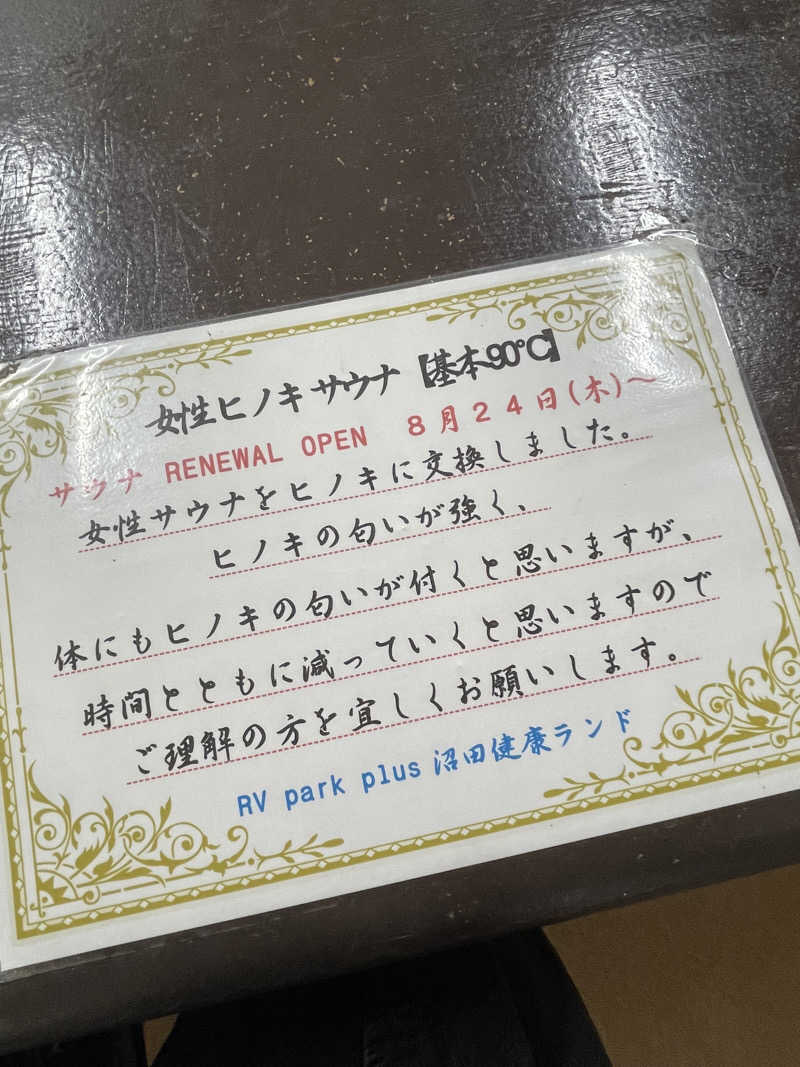 女性ヒノキサウナ【基本90℃】
サウナ RENEWAL OPEN 8月24日(木)～
女性サウナをヒノキに交換しました。
ヒノキの匂いが強く、
体にもヒノキの匂いが付くと思いますが、
時間とともに減っていくと思いますので
ご理解の方を宜しくお願いします。
RV park plus 沼田健康ランド